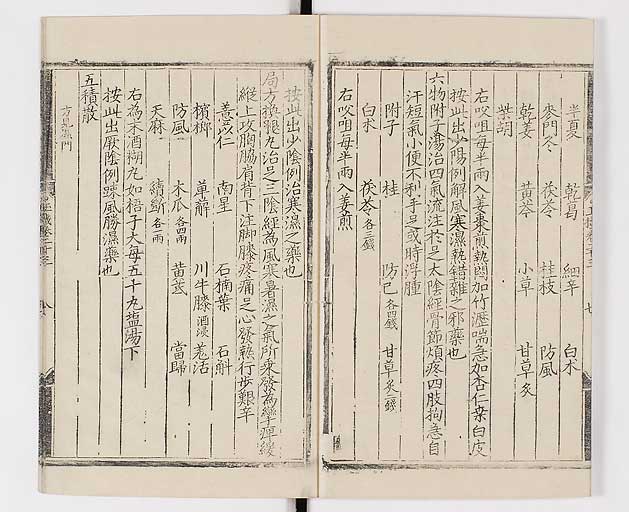 半夏 乾葛 細辛 白朮
麥門冬 茯苓 桂枝 防風
乾姜 黃芩 小草 甘草炙
柴胡
右㕮咀每半兩入姜棗煎熱悶加竹瀝喘急加杏仁桒白皮
按此出少陽例解風寒濕熱錯雜之邪藥也
六物附子湯治四氣流注於足太陰經骨節煩疼四肢拘急自
汗短氣小便不利手足或時浮腫
附子 桂 防已各四錢 甘草炙二錢
白朮 茯苓各三錢
右㕮咀每半兩入姜煎
七
按此出少陰例治寒濕之藥也
局方換腿丸治足三陰經為風寒暑濕之氣所乘發為攣痺緩
縱上攻胸脇肩背下注脚膝疼痛足心發熱行步艱辛
薏苡仁 南星 石楠葉 石斛
檳榔 萆薢 川牛膝酒浸 羌活
防風 木瓜各四兩 黃芪 當歸
天麻 續斷各一兩
右為末酒糊丸如梧子大每五十丸塩湯下
按此出厥陰例踈風勝濕藥也
五積散
方見 門
八